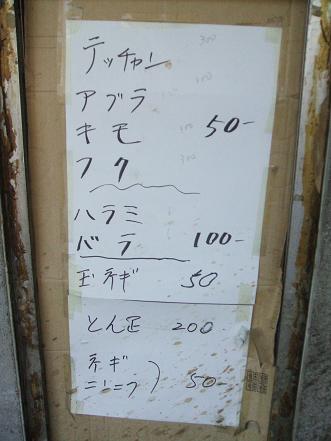 テッチャン
アブラ
キモ 50-
フク
ハラミ
バラ 100-
玉ネギ 50
とん足 200
ネギ
ニンニク 50-